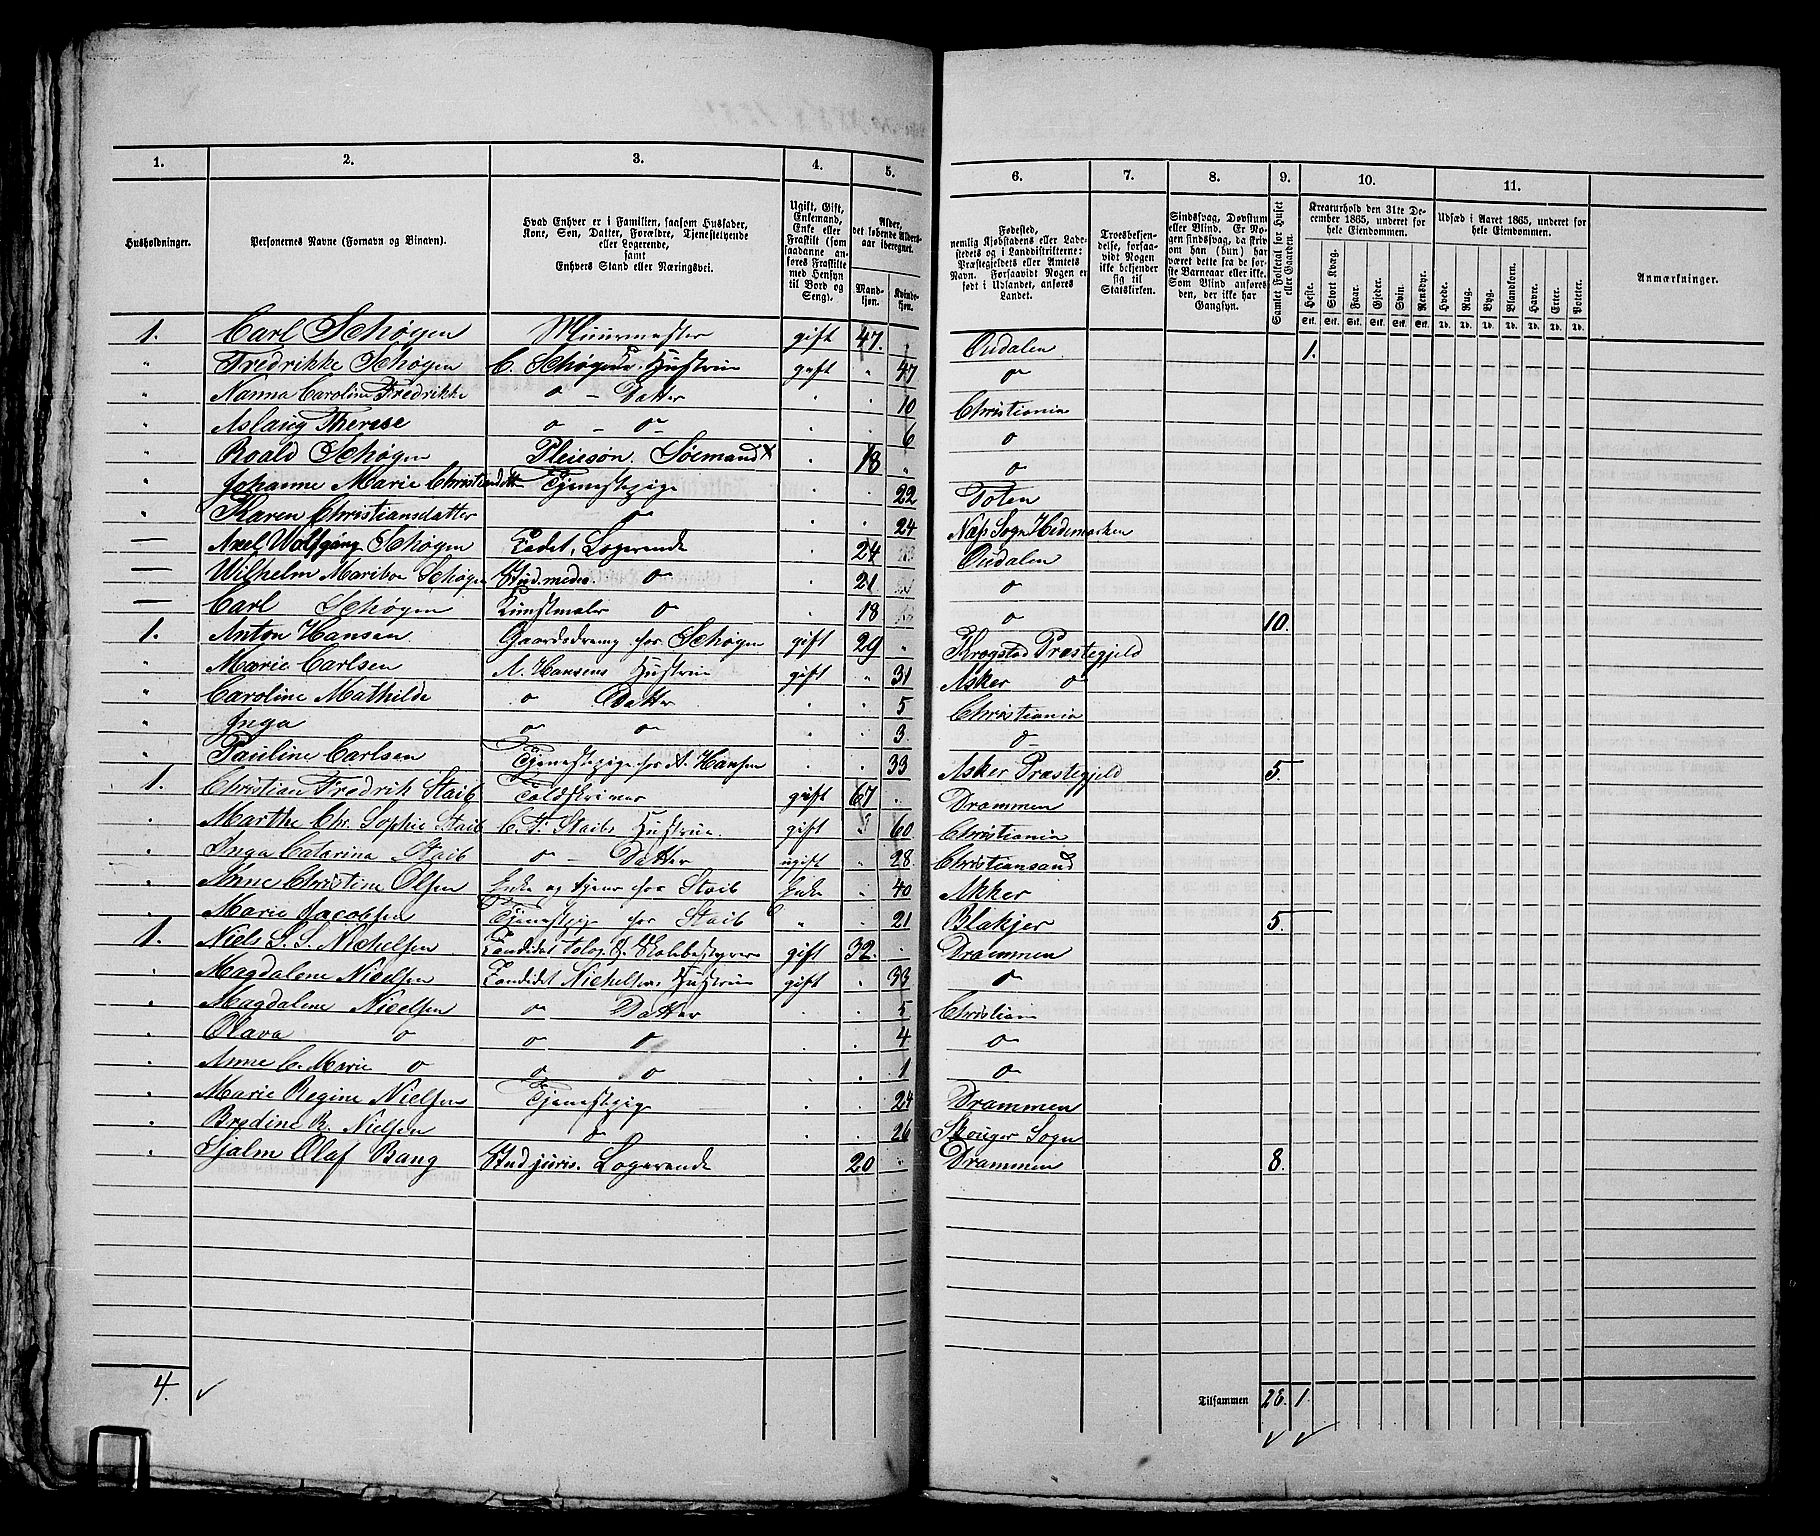 1. 2. 3. 4. 5. 6. 7. 8. 9. 10. 11.
Husholdninger.
Personernes Navne (Fornavn og Binavn).
Hvad Enhver er i Familien, saasom Husfader, Kone, Søn, Datter, Forældre, Tjenestetyende eller Logerende, samt Enhvers Stand eller Næringsvei.
Ugift, Gift, Enkemand, Enke eller Fraskilt (som saadanne anføres Fraskilte med Hensyn til Bord og Seng).
Alder, det løbende Aldersaar iberegnet.
Mandkjøn. Kvindekjøn.
Fødested, nemlig Kjøbstadens eller Ladestedets og i Landdistrikterne: Præstegjeldets eller Amtets Navn. Forsaavidt Nogen er født i Udlandet, anføres Landet.
Troesbekjendelse, forsaavidt Nogen ikke bekjender sig til Statskirken.
Sindssvag, Døvstum eller Blind. Er Nogen sindssvag, da skriv om han (hun) har været dette fra de første Barneaar eller ikke. Som Blind anføres den, der ikke har Gangsyn.
Samlet Folketal for Huset eller Gaarden.
Kreaturhold den 31te December 1865, underet for hele Eiendommen.
Heste. Stort Kvæg. Faar. Gjeder. Svin. Rensdyr.
Stk. Stk. Stk. Stk. Stk. Stk.
Udsæd i Aaret 1865, underet for hele Eiendommen.
Hvede. Rug. Byg. Blandkorn. Havre. Erter. Poteter.
Td. Td. Td. Td. Td. Td. Td.
Anmærkninger.
1. Carl Schøgen Muurmester gift 47. Oudalen 1.
" Fredrikke Schøgen C. Schøgens Hustrue gift " 47 o
" Nanna Caroline Fredrikke o - Datter . . 10 Christiania
" Aslaug Therese o - o . . 6 o
" Roald Schøgen Pleiesøn. Sømand X . 18 " o
" Johanne Marie Christiansdtt Tjenestepige . . 22 Toten
" Karen Christiansdatter o . . 24 Næs Sogn Hedemarken
— Axel Wolfgang Schøgen Cadet, Logerende . 24 Oudalen
— Wilhelm Maribo Schøgen Stud. medes. o . 21 o
— Carl Schøgen Kunstmaler o . 18 o 10.
1. Anton Hansen Gaardsdreng for Schøgen gift 29 " Krogstad Præstegjeld
" Marie Carlsen A. Hansens Hustrue gift " 31 Asker o
" Caroline Mathilde o Datter . . 5 Christiania
" Inga o o . . 3. o
" Pauline Carlsen Tjenestepige for A. Hansen . . 33 Asker Præstegjeld 5.
1. Christian Fredrik Staib Toldskriver gift 67 . Drammen
. Marthe Chr. Sophie Staib C. F. Staibs Hustrue. gift 60 Christiania
" Inga Catarina Staib o - Datter ugift . 28. Christiansand
" Anne Christine Olsen Enke og tjener for Staib Enke . 40 Akker
. Marie Jacobsen Tjenestpige for Staib " . 21 Blakjer 5.
1. Niels S. S. Nichelsen Candidat tolog. & Skolebestyrer gift 32. . Drammen
. Magdalene Nielsen Candidat Nichelsens Hustrue gift . 33 o
. Magdalene Nielsen o Datter . . 5 Christiania
. Olava o o o . . 4 o
. Anne C. Marie o o o . . 1 o
. Marie Regine Nielsen Tjenestepige . . 24 Drammen
" Bredine B. Nielsen o . . 26 Skouger Sogn
. Hjalm Olaf Bang Stud juris. Logerende 20 " Drammen 8.
4. ✓ Tilsammen 28. 1.
✓ ✓